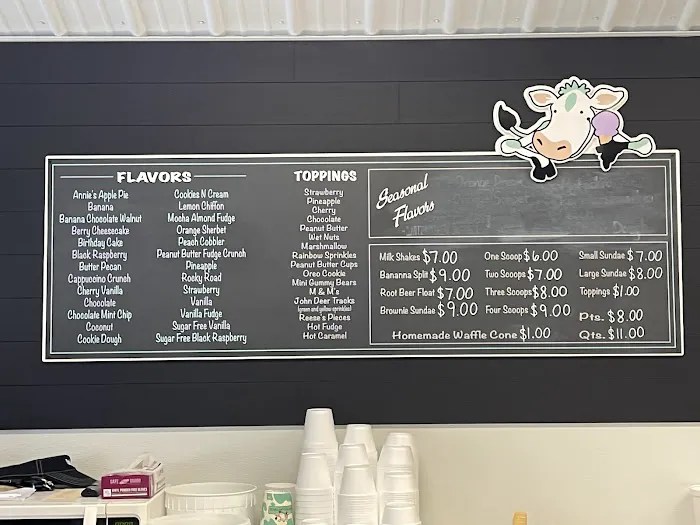 FLAVORS
Annie's Apple Pie
Banana
Banana Chocolate Walnut
Berry Cheesecake
Birthday Cake
Black Raspberry
Butter Pecan
Cappuccino Crunch
Cherry Vanilla
Chocolate
Chocolate Mint Chip
Coconut
Cookie Dough
Cookies N Cream
Lemon Chiffon
Mocha Almond Fudge
Orange Sherbet
Peach Cobbler
Peanut Butter Fudge Crunch
Pineapple
Rocky Road
Strawberry
Vanilla
Vanilla Fudge
Sugar Free Vanilla
Sugar Free Black Raspberry
TOPPINGS
Strawberry
Pineapple
Cherry
Chocolate
Peanut Butter
Wet Nuts
Marshmallow
Rainbow Sprinkles
Peanut Butter Cups
Oreo Cookie
Mini Gummy Bears
M & M's
John Deer Tracks
(green and yellow sprinkles)
Reese's Pieces
Hot Fudge
Hot Caramel
Seasonal
Flavors
Milk Shakes $7.00
Bananna Split $9.00
Root Beer Float $7.00
Brownie Sundae $9.00
One Scoop $6.00
Two Scoops $7.00
Three Scoops $8.00
Four Scoops $9.00
Small Sundae $7.00
Large Sundae $8.00
Toppings $1.00
Pts. $8.00
Qts. $11.00
Homemade Waffle Cone $1.00